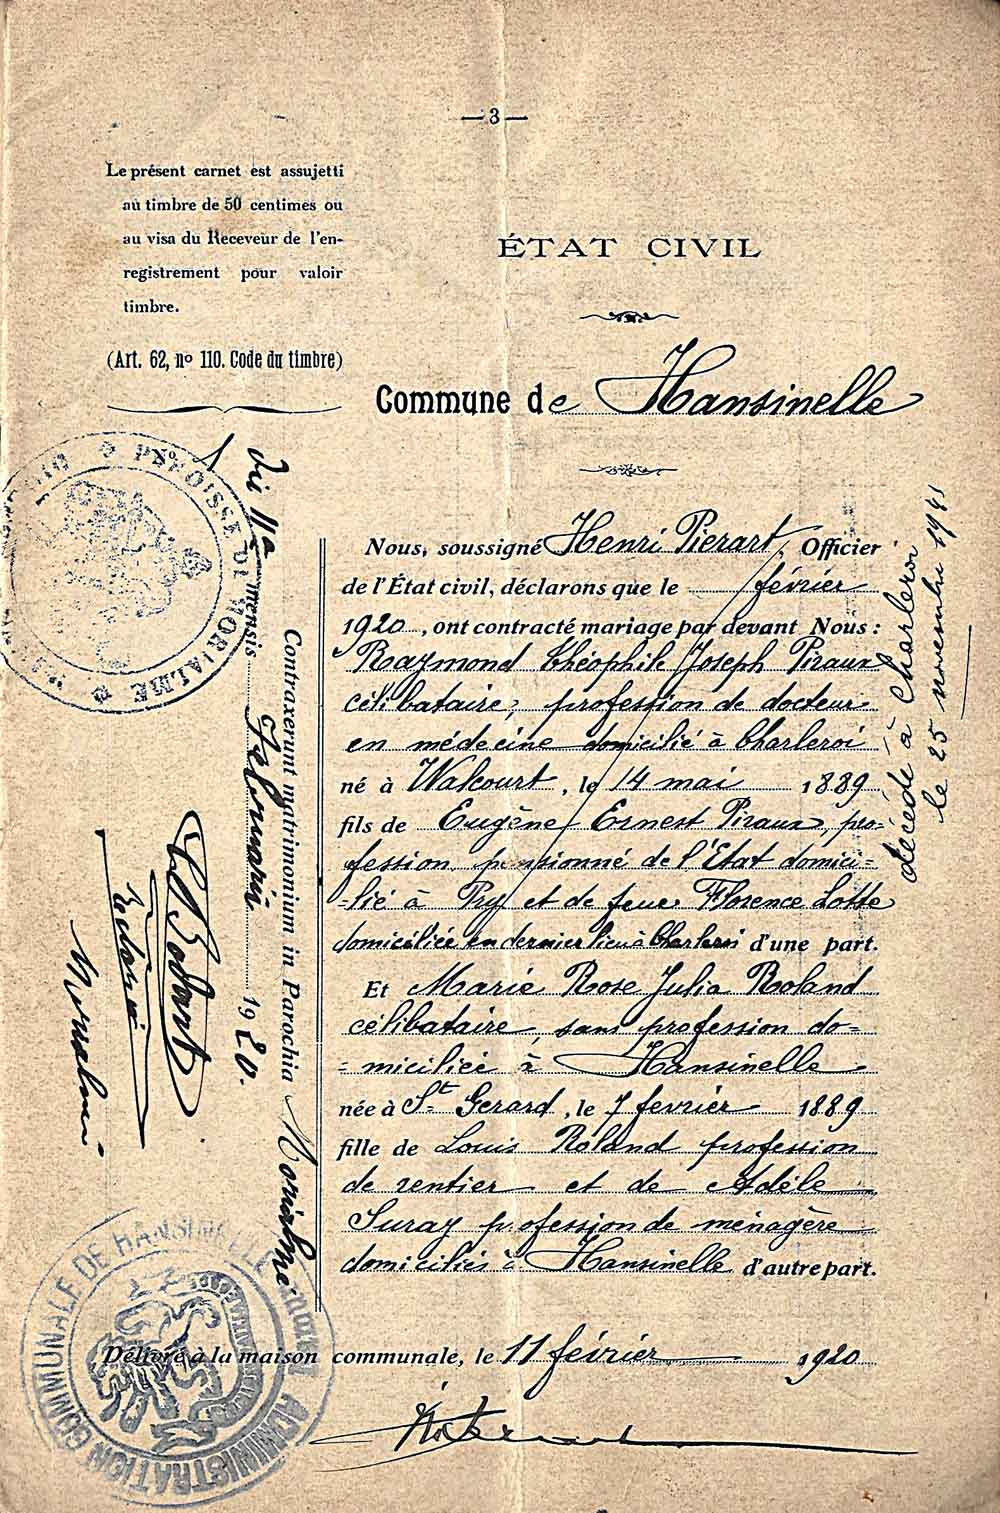 — 3 —
Le présent carnet est assujetti
au timbre de 50 centimes ou
au visa du Receveur de l'en-
registrement pour valoir
timbre.
(Art. 62, nº 110. Code du timbre)
ÉTAT CIVIL
Commune de Hansinelle
Nous, soussigné Henri Pierart, Officier
de l'État civil, déclarons que le février
1920, ont contracté mariage par devant Nous :
Raymond Théophile Joseph Piraux
célibataire, profession de docteur
en médecine domicilié à Charleroi
né à Walcourt, le 14 mai 1889
fils de Eugène Ernest Piraux, pro-
fession pensionné de l'État domici-
-lié à Pry et de feue Florence Lotte
domiciliée en dernier lieu à Charleroi d'une part.
Et Marie Rose Julia Roland
célibataire, sans profession do-
-miciliée à Hansinelle
née à St Gerard, le 7 fevrier 1889
fille de Louis Roland profession
de rentier et de Adèle
Suray profession de ménagère
domiciliés à Hansinelle d'autre part.
Délivré à la maison communale, le 11 février 1920
décédé à Charleroi
le 25 novembre 1941
Contraxerunt matrimonium in Parochia Morialmé
die 11a mensis Februarii 1920.
PAROISSE DE MORIALMÉ
ADMINISTRATION COMMUNALE DE HANSINELLE